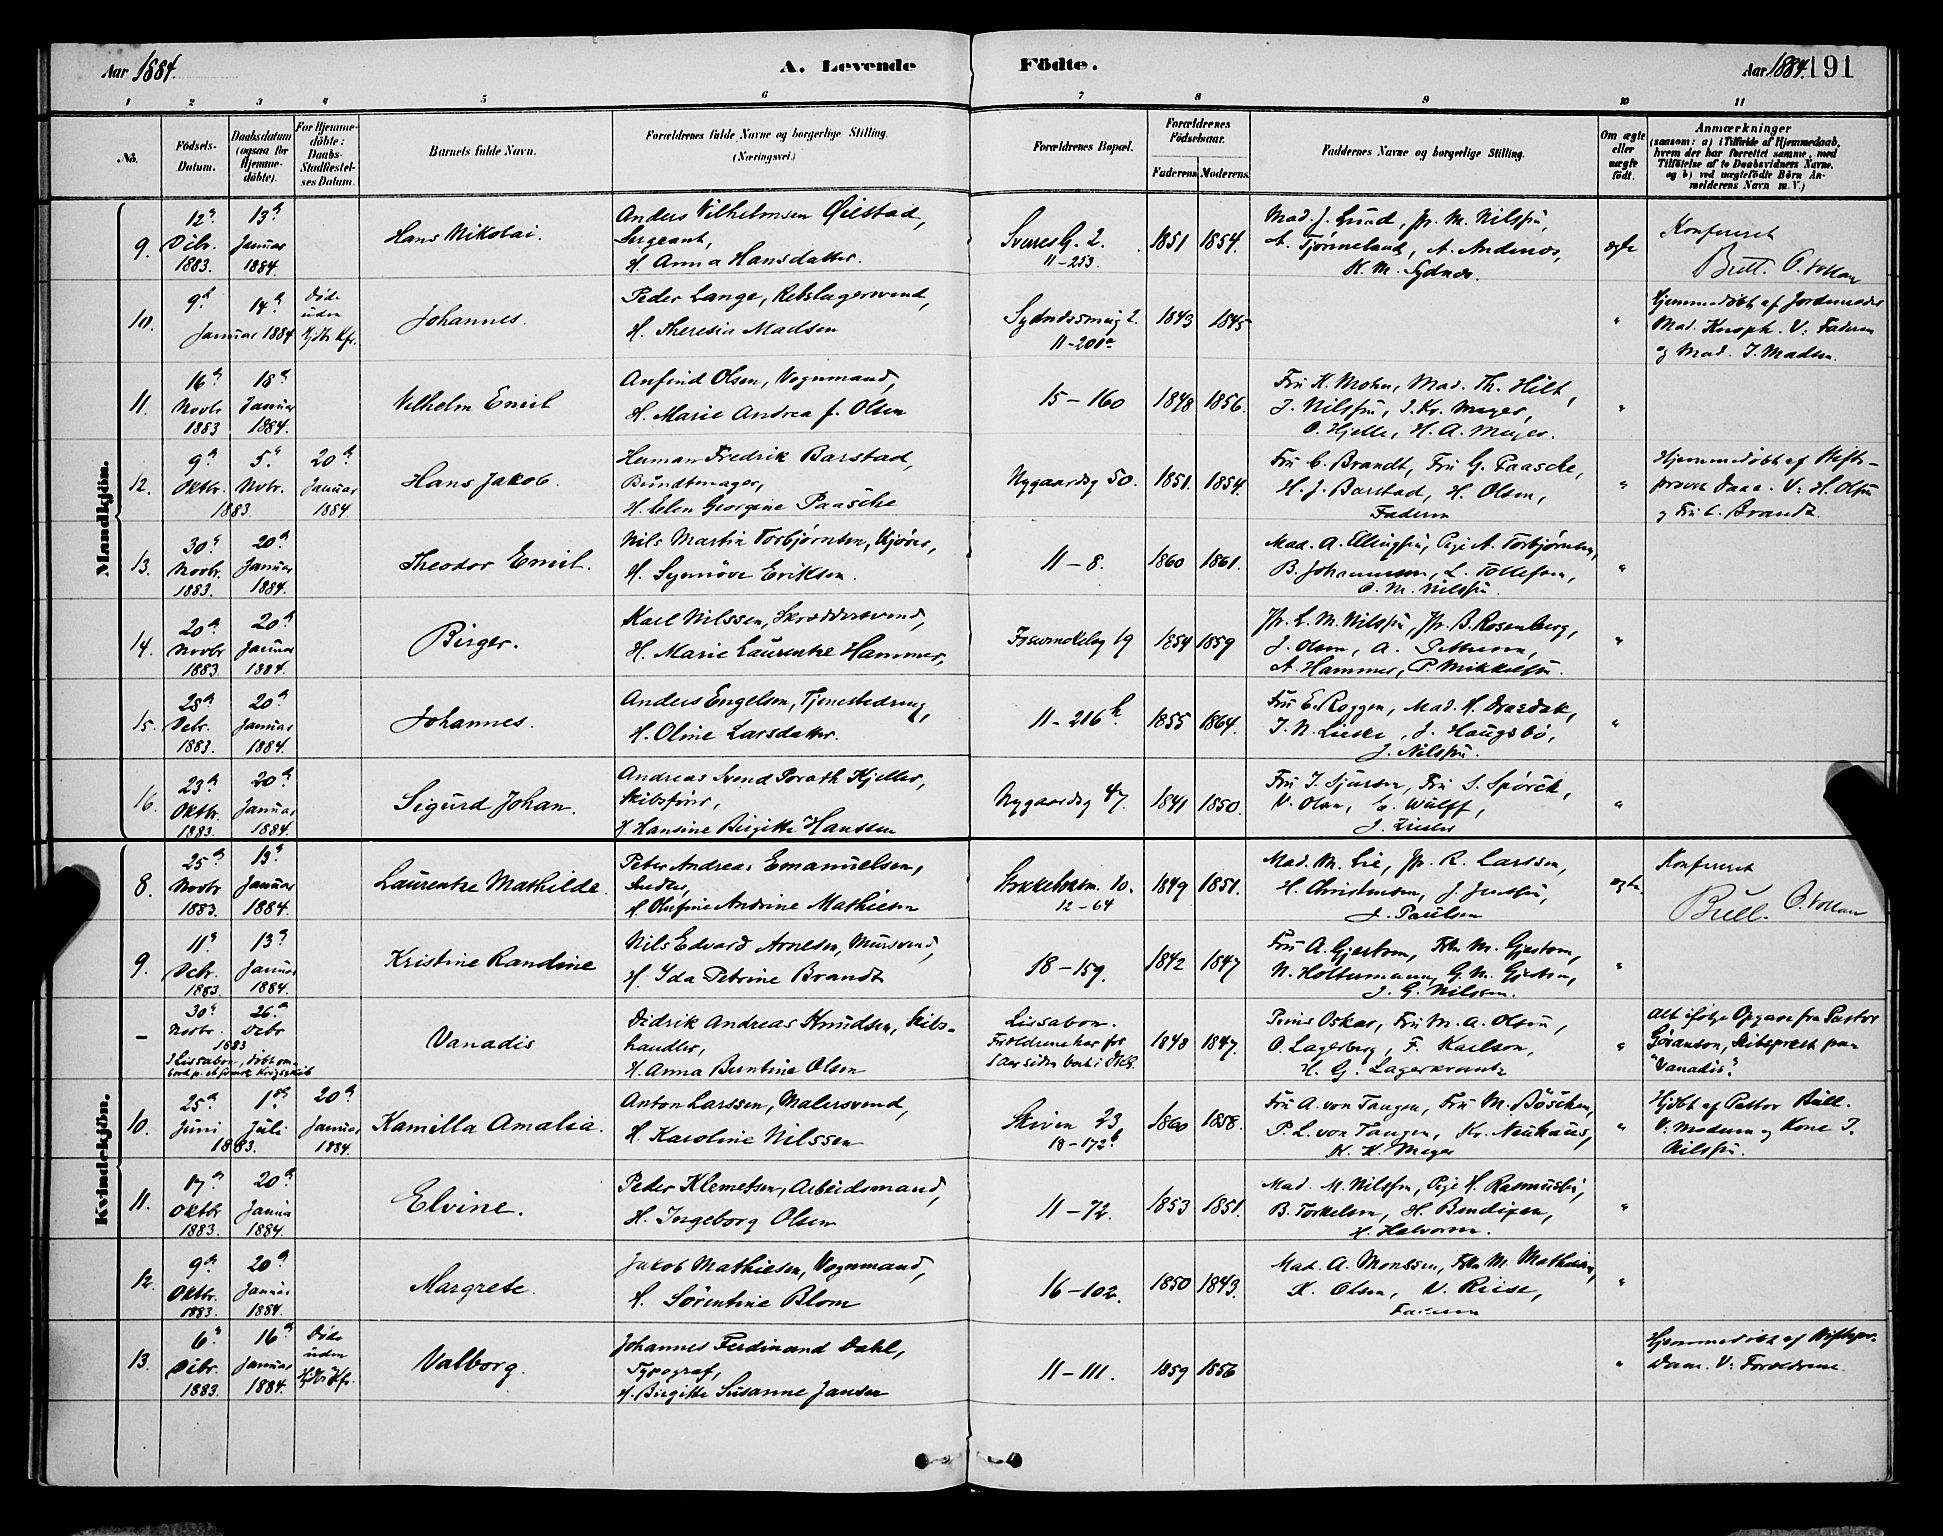 Aar 1884.
A. Levende Födte.
Aar 1884. 191
1 2 3 4 5 6 7 8 9 10 11
No.
Födsels-Datum.
Daabsdatum (ogsaa for Hjemme-döbte).
For Hjemme-döbte: Daabs-Stadfæstel-ses Datum.
Barnets fulde Navn.
Forældrenes fulde Navne og borgerlige Stilling. (Næringsvei.)
Forældrenes Bopæl.
Forældrenes Födselsaar.
Faderens Moderens
Faddernes Navne og borgerlige Stilling.
Om ægte eller uægte födt.
Anmærkninger
(saasom: a) i Tilfælde af Hjemmedaab,
hvem der har forrettet samme, med
Tilföielse af to Daabsvidners Navne.
og b) ved uægtefödte Börn An-
melderens Navn m. V.)
Mandkjön.
9. 12 Debr. 1883. 13 Januar 1884. Hans Nikolai.
Anders Vilhelmsen Øilstad,
Sergeant,
H. Anna Hansdatter.
SverresG. 2.
11-253.
1851 1854.
Mad. J. Lund, Jr. M. Nilssen,
A. Tjønneland, A. Andenæs,
K. M. Sydnæs.
ægte
Konfereret
Bull. O. Vollan
10. 9 14 Januar 1884 Døde uden Hjdbs Kfr. Johannes.
Peder Lange, Rebslagersvend,
H. Theresia Madsen
Sydnæssmug 2.
11-201a
1843 1845
"
Hjemmedøbt af Jordemoder
Mad. Knoph. V: Faderen
og Mad. J. Madsen.
11. 16 Novbr 1883 18 Januar 1884. Vilhelm Emil
Anfind Olsen, Vognmand,
H. Marie Andrea f. Olsen
15-160
1848 1856.
Fru K. Mohn, Mad. Th. Hilt,
J. Nilssen, J. Kr. Meyer,
O. Hjelle, H. A. Meyer.
"
12. 9 Oktbr. 5 Nvbr. 1883. 20 Januar 1884 Hans Jakob.
Herman Fredrik Barstad,
Bundtmager,
H. Elen Georgine Paasche
Nygaardsg 50.
1851. 1854.
Fru C. Brandt, Fru G. Paasche,
H. J. Barstad, H. Olsen,
Faderen
"
Hjemmedøbt af Stifts-
provst Daae. V: H. Olsen
og Fru C. Brandt.
13. 30 Novbr. 1883. 20 Januar 1884. Theodor Emil.
Nils Martin Torbjørnsen,
H. Synnøve Eriksen.
11-8.
1860 1861.
Mad. A. Ellingsen, Pige A. Torbjørnsen,
B. Johannessen, L. Tollefsen,
O. M. Nilssen.
"
14. 20 Novbr 1883. 20 Januar 1884. Birger.
Karl Nilssen, Skræddersvend,
H. Marie Laurentze Hammer,
19
1854 1859
Jfr. L. M. Nilssen, Jfr. B. Rosenberg,
J. Olsen, A. Pettersen,
A. Hammer, P. Mikkelsen.
"
15. 28 Debr. 1883. 20 Januar 1884. Johannes.
Anders Engelsen, Tjenestedreng,
H. Oline Larsdatter.
11-216 b.
1855 1864.
Fru E. Roggen, Mad. K.
J. Haugsbø,
J. Nilssen.
"
16. 23 Oktbr. 1883. 20 Januar 1884. Sigurd Johan.
Andreas Svend Porath Kjeller,
Skibsfører,
H. Hansine Birgitte Hanssen
Nygaardsg 47.
1841 1850.
Fru J. Sjursen, Fru S. Spörck,
V. Olsen, E. Wulff,
"
Kvindekjön.
8. 25 Novbr 1883. 13 Januar 1884. Laurentze Mathilde.
Peter Andreas Emanuelsen,
H. Olufine Andrine Mathiesen
10.
12-64
1849 1851.
Mad. M. Lie, Jfr. R. Larssen,
H. Christensen, J. Jenssen,
J. Paulsen
ægte.
Konfereret
Bull. O. Vollan
9. 11 Debr. 1883. 13 Januar 1884. Kristine Randine
Nils Edvard Arnesen, Mursvend,
H. Ida Petrine Brandt
18-159.
1842 1847
Fru A. Gjertsen, Frkn M. Gjertsen,
N. Holtermann, G. M. Gjertsen,
J. G. Nilssen.
"
— 30 Novbr. 26 Debr 1883
I Lissabon, døbt om-
bord p. et svensk Krigsskib
Vanadis
Didrik Andreas Knudsen, Skibs-
handler,
H. Anna Berntine Olsen
Lissabon.
1848 1847.
Prins Oskar, Fru M. A. Olsen,
O. Lagerberg, F. Karlson,
H. G. Lagerkrantz
"
Alt ifølge Opgave fra Pastor
Göranson, Skibsprest paa
"Vanadis".
10. 25 Juni 1 Juli 1883. 20 Januar 1884. Kamilla Amalia.
Anton Larssen, Malersvend,
H. Karoline Nilssen
Skiven 23,
19-172b
1860 1858.
Fru A. von Tangen, Fru M. Böschen,
P. L. von Tangen, Kr. Neuhaus,
K. K. Meyer
"
Hjdbt af Pastor Bull.
V: Moderen og Kone J.
Nilssen.
11. 17 Oktbr 1883. 20 Januar 1884. Elvine.
Peder Klemetsen, Arbeidsmand,
H. Ingeborg Olsen
11-72.
1853 1851.
Mad. M. Nilssen, Pige H. Rasmussen,
B. Torkelsen, H. Bendixen,
H. Halvorsen.
"
12. 9 Oktbr. 1883. 20 Januar 1884. Margrete.
Jakob Mathiesen, Vognmand,
H. Sørentine Blom
16-102.
1850 1843.
Mad. A. Monssen, Frkn M. Mathiesen,
K. Olsen, V. Riise,
Faderen
"
13. 6 Debr. 1883. 16 Januar 1884. Døde uden Hjdbs Kfr. Valborg.
Johannes Ferdinand Dahl,
Typograf,
H. Birgitte Susanne Jansen
11-111.
1859 1856
"
Hjemmedøbt af Stiftspr.
Daae. V: Forældrene.